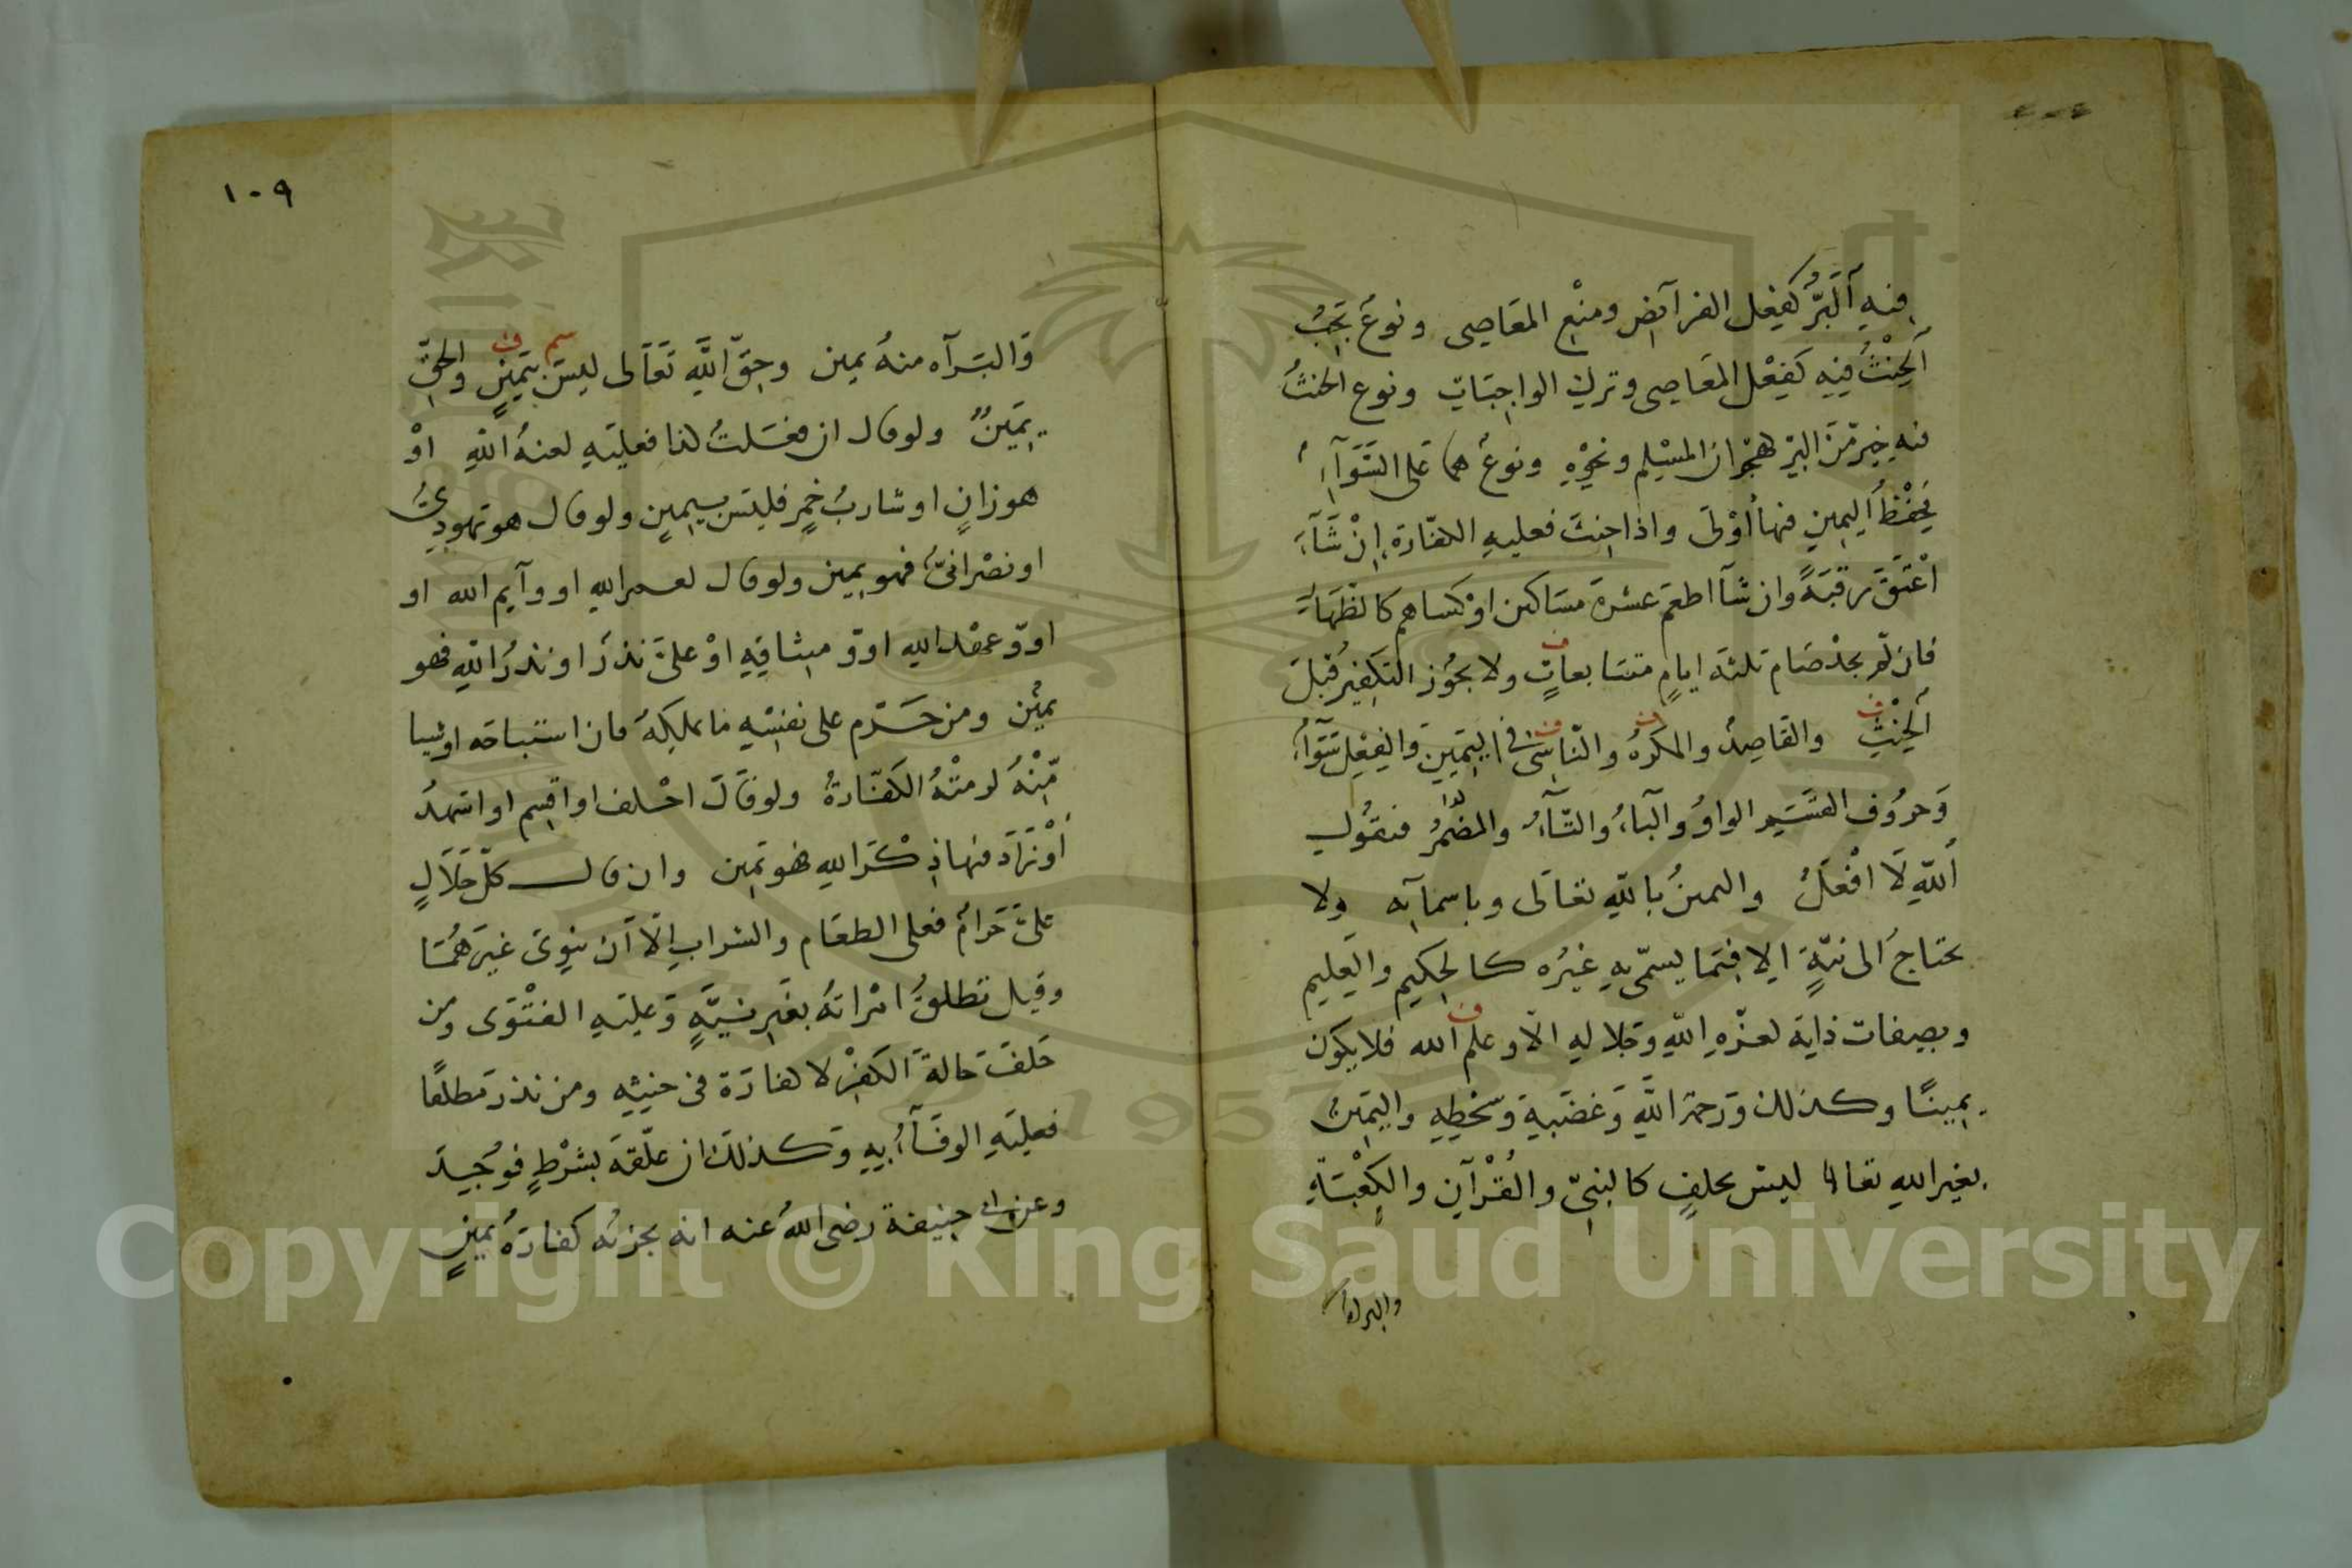 فيهِ البِرُّ كفِعل الفرآئض ومنْعِ المعَاصِي ونوعٌ يَجِبُ
الحِنْثُ فيهِ كَفِعْل المعَاصِي وتركِ الواجبَاتِ ونوع الحنثُ
فيه خير مّنَ البِرّ هجْران المسْلِم ونحوْهِ ونوعٌ هما عَلى السَّوَآءِ
فحِفْظُ اليمينِ فيها أوْلَى واذا حنِثَ فعليهِ الكفّارة إنْ شَآءَ
اعْتَقَ رقبَةً وان شآ اطعَمَ عشرة مسَاكين اوْ كساهم كالظهَار
فان لّم يجدْ صَام ثلثة ايامٍ متتابعاتٍ ولا يجُوز التكفيرُ قبْلَ
الحِنْثِ والقَاصِدُ والمكرهُ والنّاسِى فى اليَمِينِ والفِعْلِ سَوَآءُ
وَحروُف القسَمِ الواوُ والبآءُ والتّآءُ والمضْمَرُ فتقُول
اَللهِ لَا افْعَلُ واليمينُ باللهِ تعَالَى وباسمآئه ولا
يحتاجُ الى نيّةٍ الا فيمَا يسمّى بهِ غيْرُه كالحكيم والعَليم
وبصِفات ذاته لعزّةِ اللهِ وجَلالهِ الّا وعلم الله فلا يكون
يمِينًا وكذلك وَرحمة اللهِ وَغضَبِهِ وَسَخطِهِ واليَمِينُ
بغير اللهِ تعالى ليسَ بحلفٍ كالنبىّ والقُرْآن والكَعْبَةِ
والبرآه
١٠٩
وَالبَرآه منهُ يمين وحقّ اللهِ تَعَالى ليسَ بيَمينٍ والحقّ
يَمِينٌ ولو قال ان فعَلتُ كذا فعليَهِ لعنهُ اللهِ اوْ
هو زانٍ او شاربُ خمرٍ فليسَ بيمينٍ ولو قال هو يَهودِىٌّ
او نصْرانىٌّ فهو يمين ولو قال لعمر اللهِ او وآيم الله او
او وَعهْد اللهِ او وَ ميثاقِهِ اوْ علىَّ نذرٌ او نذرُ اللهِ فهو
يمينٌ ومن حَرّم على نفسِهِ ما يملكِهُ فان استباحَه او شيا
مِّنْهُ لزمتْهُ الكَفّارةُ ولو قَالَ احْلف او اقسِم او اشهدُ
اَوْ زَادَ فيها ذِكْرَ اللهِ فهو يَمين وان قال كلّ حَلَالٍ
علىَّ حَرامٌ فعلى الطعَام والشرابِ الّا اَن ينوِىَ غيرَهُمَا
وقيل تطلقُ امْراتهُ بغَيرِ نيَّةٍ وَعليَهِ الفتْوَى ومن
حَلفَ حَالةَ الكفرِ لا كفارَة فى حنثِهِ ومن نذر مطلقًا
فعليَهِ الوفَآءُ بِهِ وَكذلكَ ان علّقهَ بشرْطٍ فوُجِدَ
وعن ابى حنيفة رضى اللهُ عنه انه يجزئه كفارَةُ يمينٍ